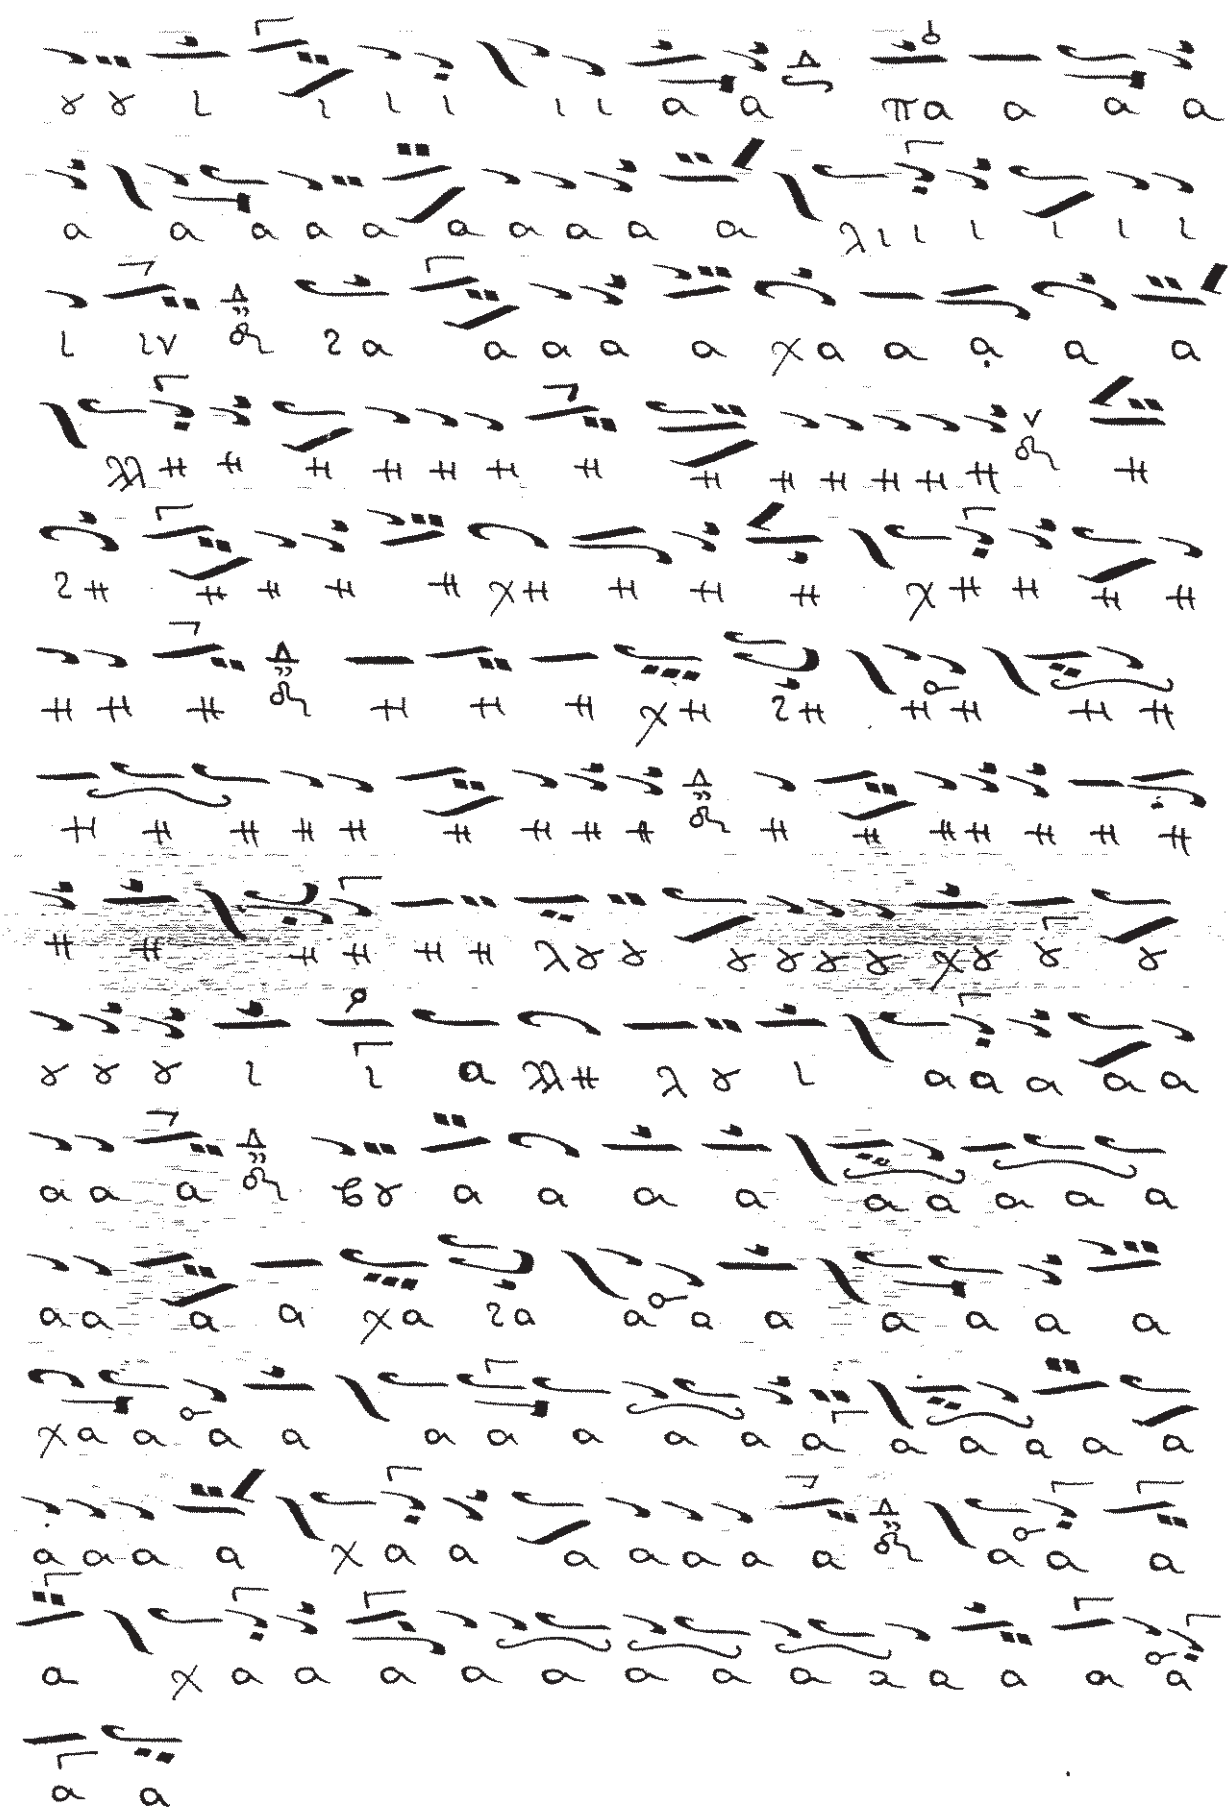 ȣ ȣ ι ι ι ι ι ι α α πα α α α
α α α α α α α α α α λι ι ι ι ι ι
ι ιν 2α α α α α χα α α α α
λλη η η η η η η η η η η η η η
2η η η η η χη η η η χη η η η
η η η η η η χη 2η η η η η
η η η η η η η η η η η η η η η η
η η η η η η λȣ ȣ ȣ ȣ ȣ ȣ χȣ ȣ ȣ
ȣ ȣ ȣ ι ι α λλη λȣ ι α α α α α
α α α βȣ α α α α α α α α α
α α α α χα 2α α α α α α α α
χα α α α α α α α α α α α α α α
α α α α χα α α α α α α α α α
α χα α α α α α α α α α α α α
α α